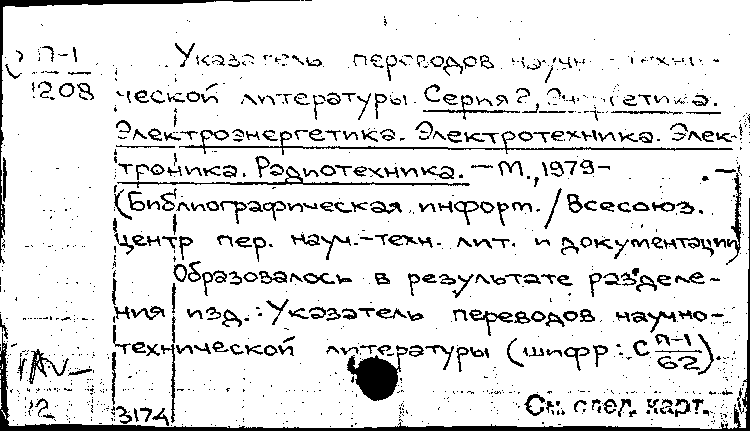 П-1
1208
Указатель переводов научн - техни-
ческой литературы. Серия 2, Энергетика.
Электроэнергетика. Электротехника. Элек-
троника. Радиотехника. — М., 1979- . —
(Библиографическая информ. / Всесоюз.
центр пер. науч.-техн. лит. и документации)
Образовалось в результате разделе-
ния изд.: Указатель переводов научно-
технической литературы (шифр: С П-1/62).
12
3174
См. след. карт.